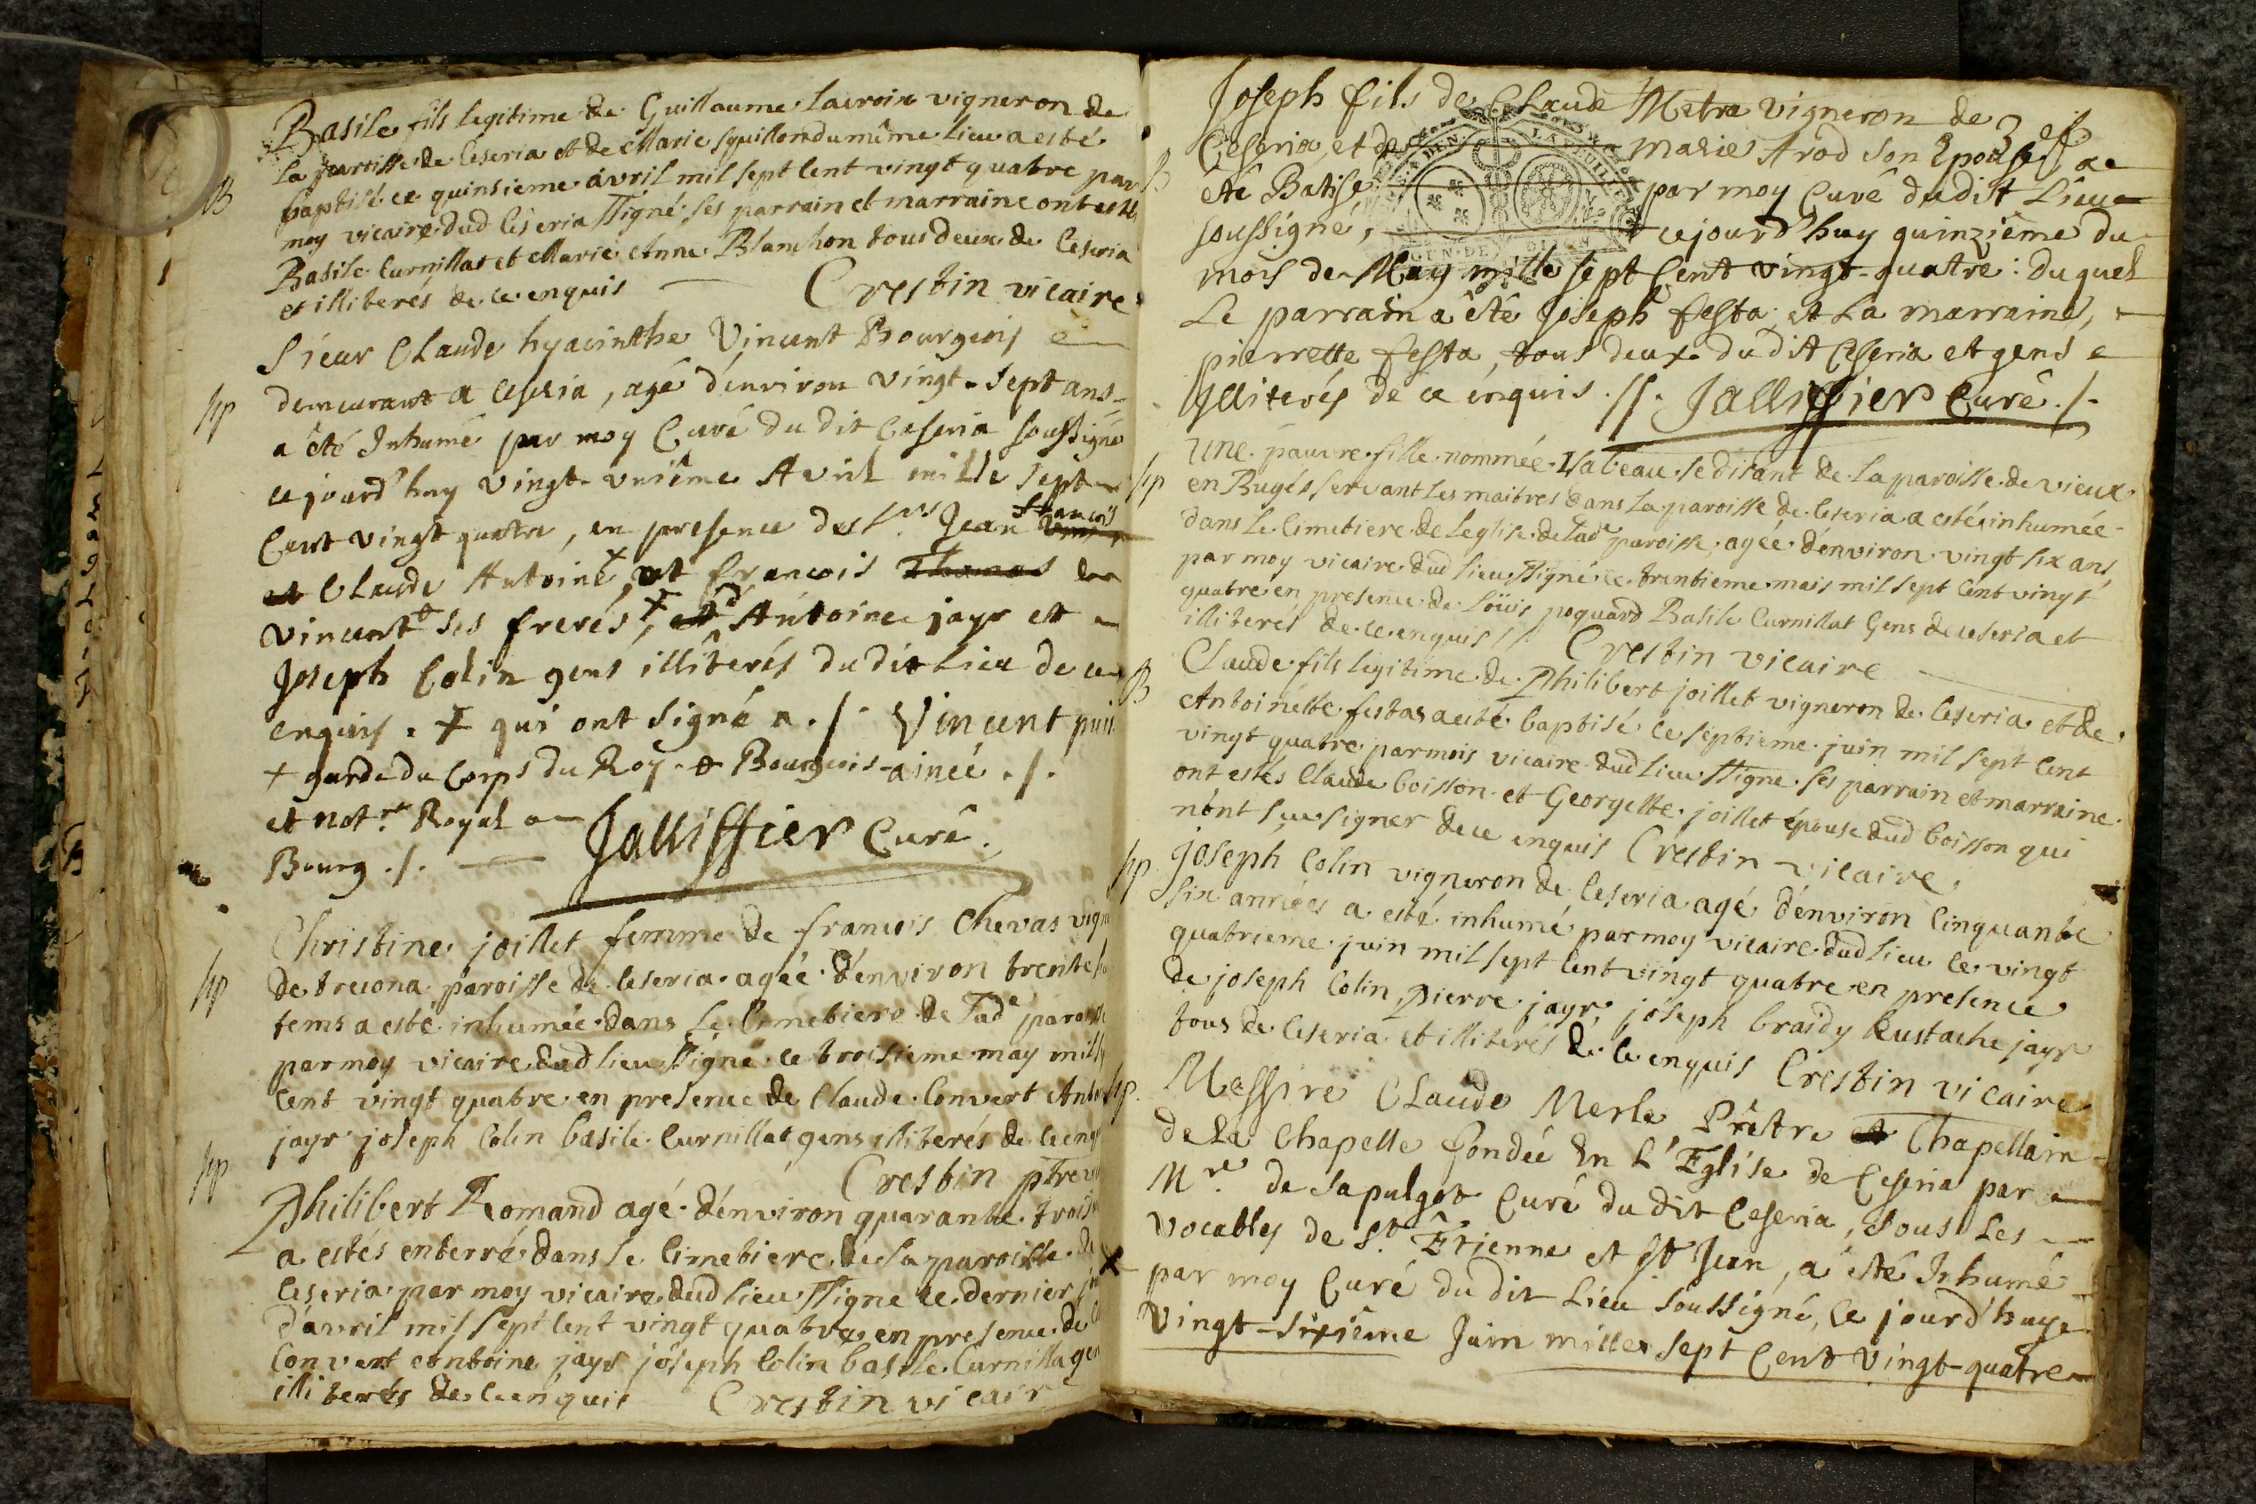 Basile fils legitime de Guillaume lacroix vigneron de
la paroisse de Ceseria et de Marie squillon du même lieu a esté
B baptisé ce quinsieme avril mil sept cent vingt quatre par
moy vicaire dud Ceseria ssigné ses parrain et marraine ont estés
Basile Curnillat et Marie Anne Blanchon tous deux de Ceseria
et illiterés de ce enquis Crestin vicaire
Sieur Claude hyacinthe Vincent Bourgeois
sp demeurant a Ceseria, agé d'environ vingt-sept ans
a êté Inhumé par moy Curé du dit Ceseria soussigné
ce jourd'huy vingt-uniême Avril mille sept
Cent vingt quatre, en presence des Srs Jean françois
et Claude Antoine + et françois Thomas
vincent ses frerés +, Antoine jayr et
Joseph Colin gens illiterés du dit Lieu de ce
enquis. + qui ont signé ./. Vincent puis
+ garde du Corps du Roy. Bourgeois ainée ./.
et notre Royal a
Bourg ./. Jalliffier Curé.
Christine joillet femme de francois Chevas vign
sp de trecona paroisse de Ceseria agée d'environ trente
tems a esté inhumée dans le Cimetiere de lade paroisse
par moy vicaire dud lieu ssigné ce troisieme may mil
Cent vingt quatre en presence de Claude Convert Anto
jayr joseph Colin basile Curnillat gens illiterés de ce enq
Crestin ptre vi
sp Philibert Romand agé d'environ quarante trois
a estés enterré dans le Cimetiere de la paroisse de
Ceseria par moy vicaire dud lieu ssigne ce dernier
d'avril mil sept cent vingt quatre en presence de
Convert Antoine jayr joseph Colin basile Curnilla gen
illiterés de ce enquis Crestin vicair
Joseph fils de Claude Metra vigneron de
Ceseria, et de Marie Arod son Epouse a
B été Batisé par moy Curé dudit Lieu
soussigné, cejourd'huy quinziême du
mois de May mille sept Cent vingt-quatre: duquel
Le parrain a êté Joseph festa, et La marraine,
pierrette festa, tous deux du dit Ceseria et gens
Illiterés de ce enquis. //. Jalliffier Curé ./.
Une pauvre fille nommée Isabeau se disant de la paroisse de vieux
sp en Bugés servant les maitres dans la paroisse de Ceseria a esté inhumée
dans le Cimetiere de leglise de lade paroisse, agée d'environ vingt six ans,
par moy vicaire dud lieu ssigné ce trentieme mais mil sept cent vingt
quatre en presence de Loüis poquard Basile Curnillat Gens de ceseria et
illiterés de ce enquis // Crestin vicaire
B Claude fils legitime de Philibert joillet vigneron de Ceseria et de
Antoinette festas a esté baptisé ce septieme juin mil sept cent
vingt quatre par mois vicaire dud lieu ssigne. ses parrain et marraine
ont estés Claude boisson et Georgette joillet épouse dud boisson qui
n'ont sceu signer de ce enquis Crestin vicaire
sp Joseph Colin vigneron de Ceseria agé d'environ Cinquante
six années a esté inhumé par moy vicaire dud lieu ce vingt
quatrieme juin mil sept cent vingt quatre en presence
de joseph Colin, Pierre jayr, joseph braidy Eustache jayr
tous de Ceseria et illiterés de ce enquis Crestin vicaire
sp. Messire Claude Merle Prêtre Chapellain
de La Chapelle fondée En L'Eglise de Ceseria par
Mre de Sapulgot Curé du dit Ceseria, sous Les
vocables de St. Êtienne et St Jean, a êté Inhumé
par moy Curé du dit Lieu soussigné, ce jourd'huy
vingt-sixiême Juin mille sept Cent vingt-quatre